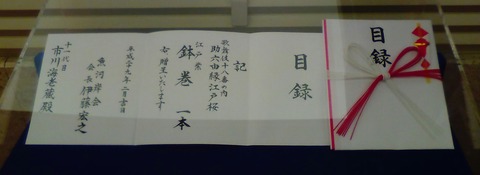 目録
目録
記
歌舞伎十八番の内
助六由縁江戸桜
江戸紫
鉢巻 一本
右 贈呈いたします
平成二十九年二月吉日
魚河岸会
会長 伊藤宏之
十一代目
市川海老蔵殿